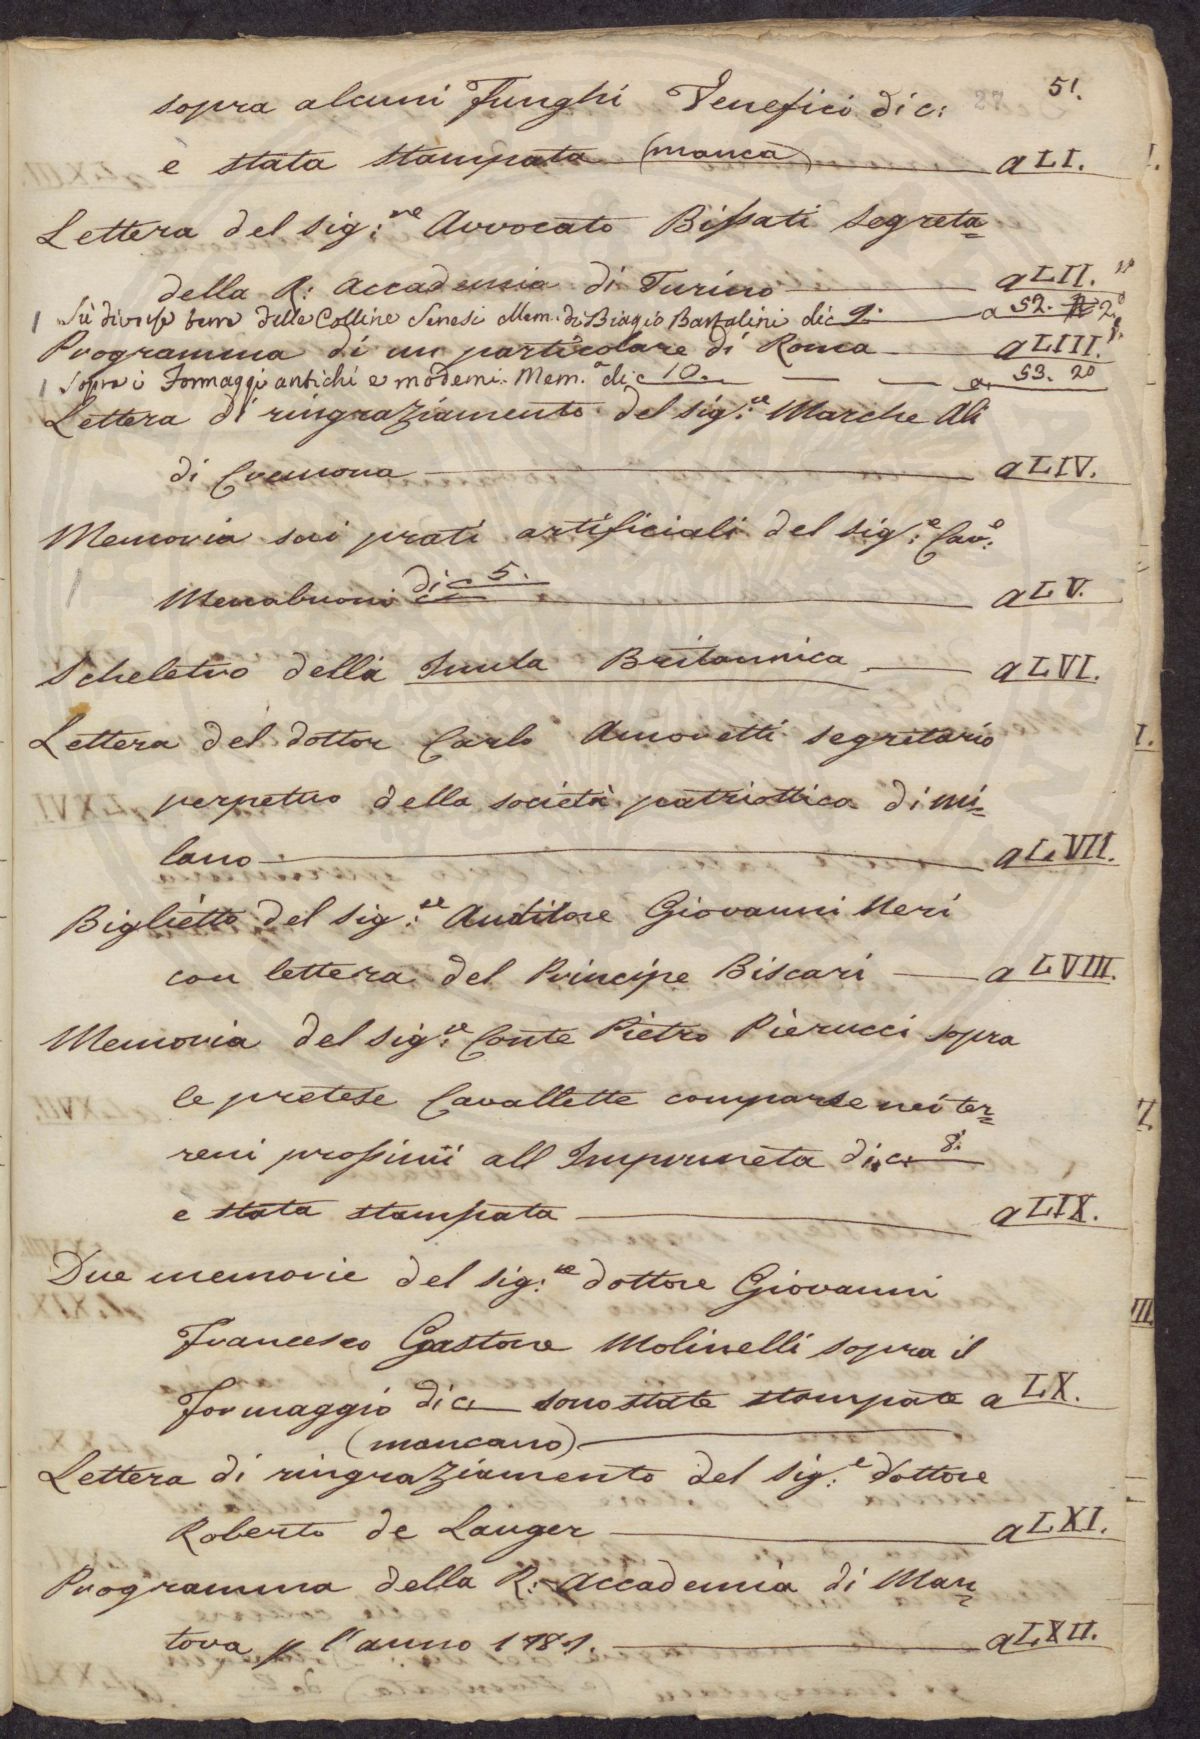 51.
27
sopra alcuni Funghi Venefici di c:
è stata stampata (manca) a LI.
Lettera del sig:re Avvocato Bissati segreta=
della R: Accademia di Turino a LII.
Su diverse terre delle Colline Senesi Mem. di Biagio Bartalini di c 9. a 52.
Programma di un particolare di Roma a LIII.
Sopra i Formaggi antichi e moderni. Mem.a di c 10. a 53. 20
Lettera di ringraziamento del sig:re Marche Ali
di Cremona a LIV.
Memoria sui prati artificiali del sig:e Cav:e
Mercabuoni di c 5. a LV.
Scheletro della Inula Britannica a LVI.
Lettera del dottor Carlo Amoretti segretario
perpetuo della società patriottica di Mi=
lano a LVII.
Biglietto del sig:re Auditore Giovanni Neri
con lettera del Principe Biscari a LVIII.
Memoria del sig:re Conte Pietro Pierucci sopra
le pretese Cavallette comparse nei ter=
reni prossimi all Impruneta di c. 8.
e stata stampata a LIX.
Due memorie del sig:re dottore Giovanni
Francesco Gastone Molinelli sopra il
formaggio di c. sono state stampate a LX.
(mancano)
Lettera di ringraziamento del sig:e dottore
Roberto de Lauger a LXI.
Programma della R: Accademia di Man=
tova p l'anno 1781. a LXII.